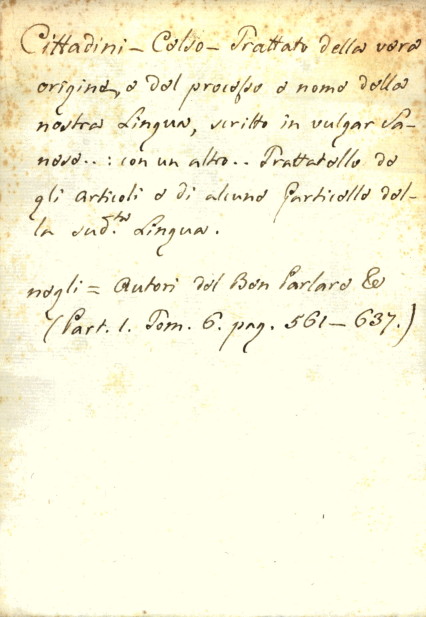 Cittadini – Celso – Trattato della vera
origine, e del processo e nome della
nostra Lingua, scritto in vulgar Sa-
nese..: con un altro.. Trattatello de
gli articoli e di alcune Particelle del-
la sud.ta Lingua.
negli = Autori del Ben Parlare &c
(Part. 1. Tom. 6. pag. 561 – 637.)